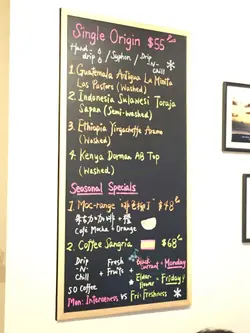 Single Origin $55
Hand-drip / Syphon / Drip-N-Chill
1. Guatemala Antigua La Minita
Los Pastores (Washed)
2. Indonesia Sulawesi Toraja
Sapan (Semi-washed)
3. Ethiopia Yirgacheffe Aramo
(Washed)
4. Kenya Dorman AB Top
(Washed)
Seasonal Specials
1. Moc-range "啡色橙" $48
朱古力+咖啡+橙
Café Mocha + Orange
2. Coffee Sangria $68
Drip-N-Chill
SO Coffee
+ Fresh Fruits +
Black currant = Monday
Elder-flower = Friday!
Mon: Intenseness vs Fri: Freshness